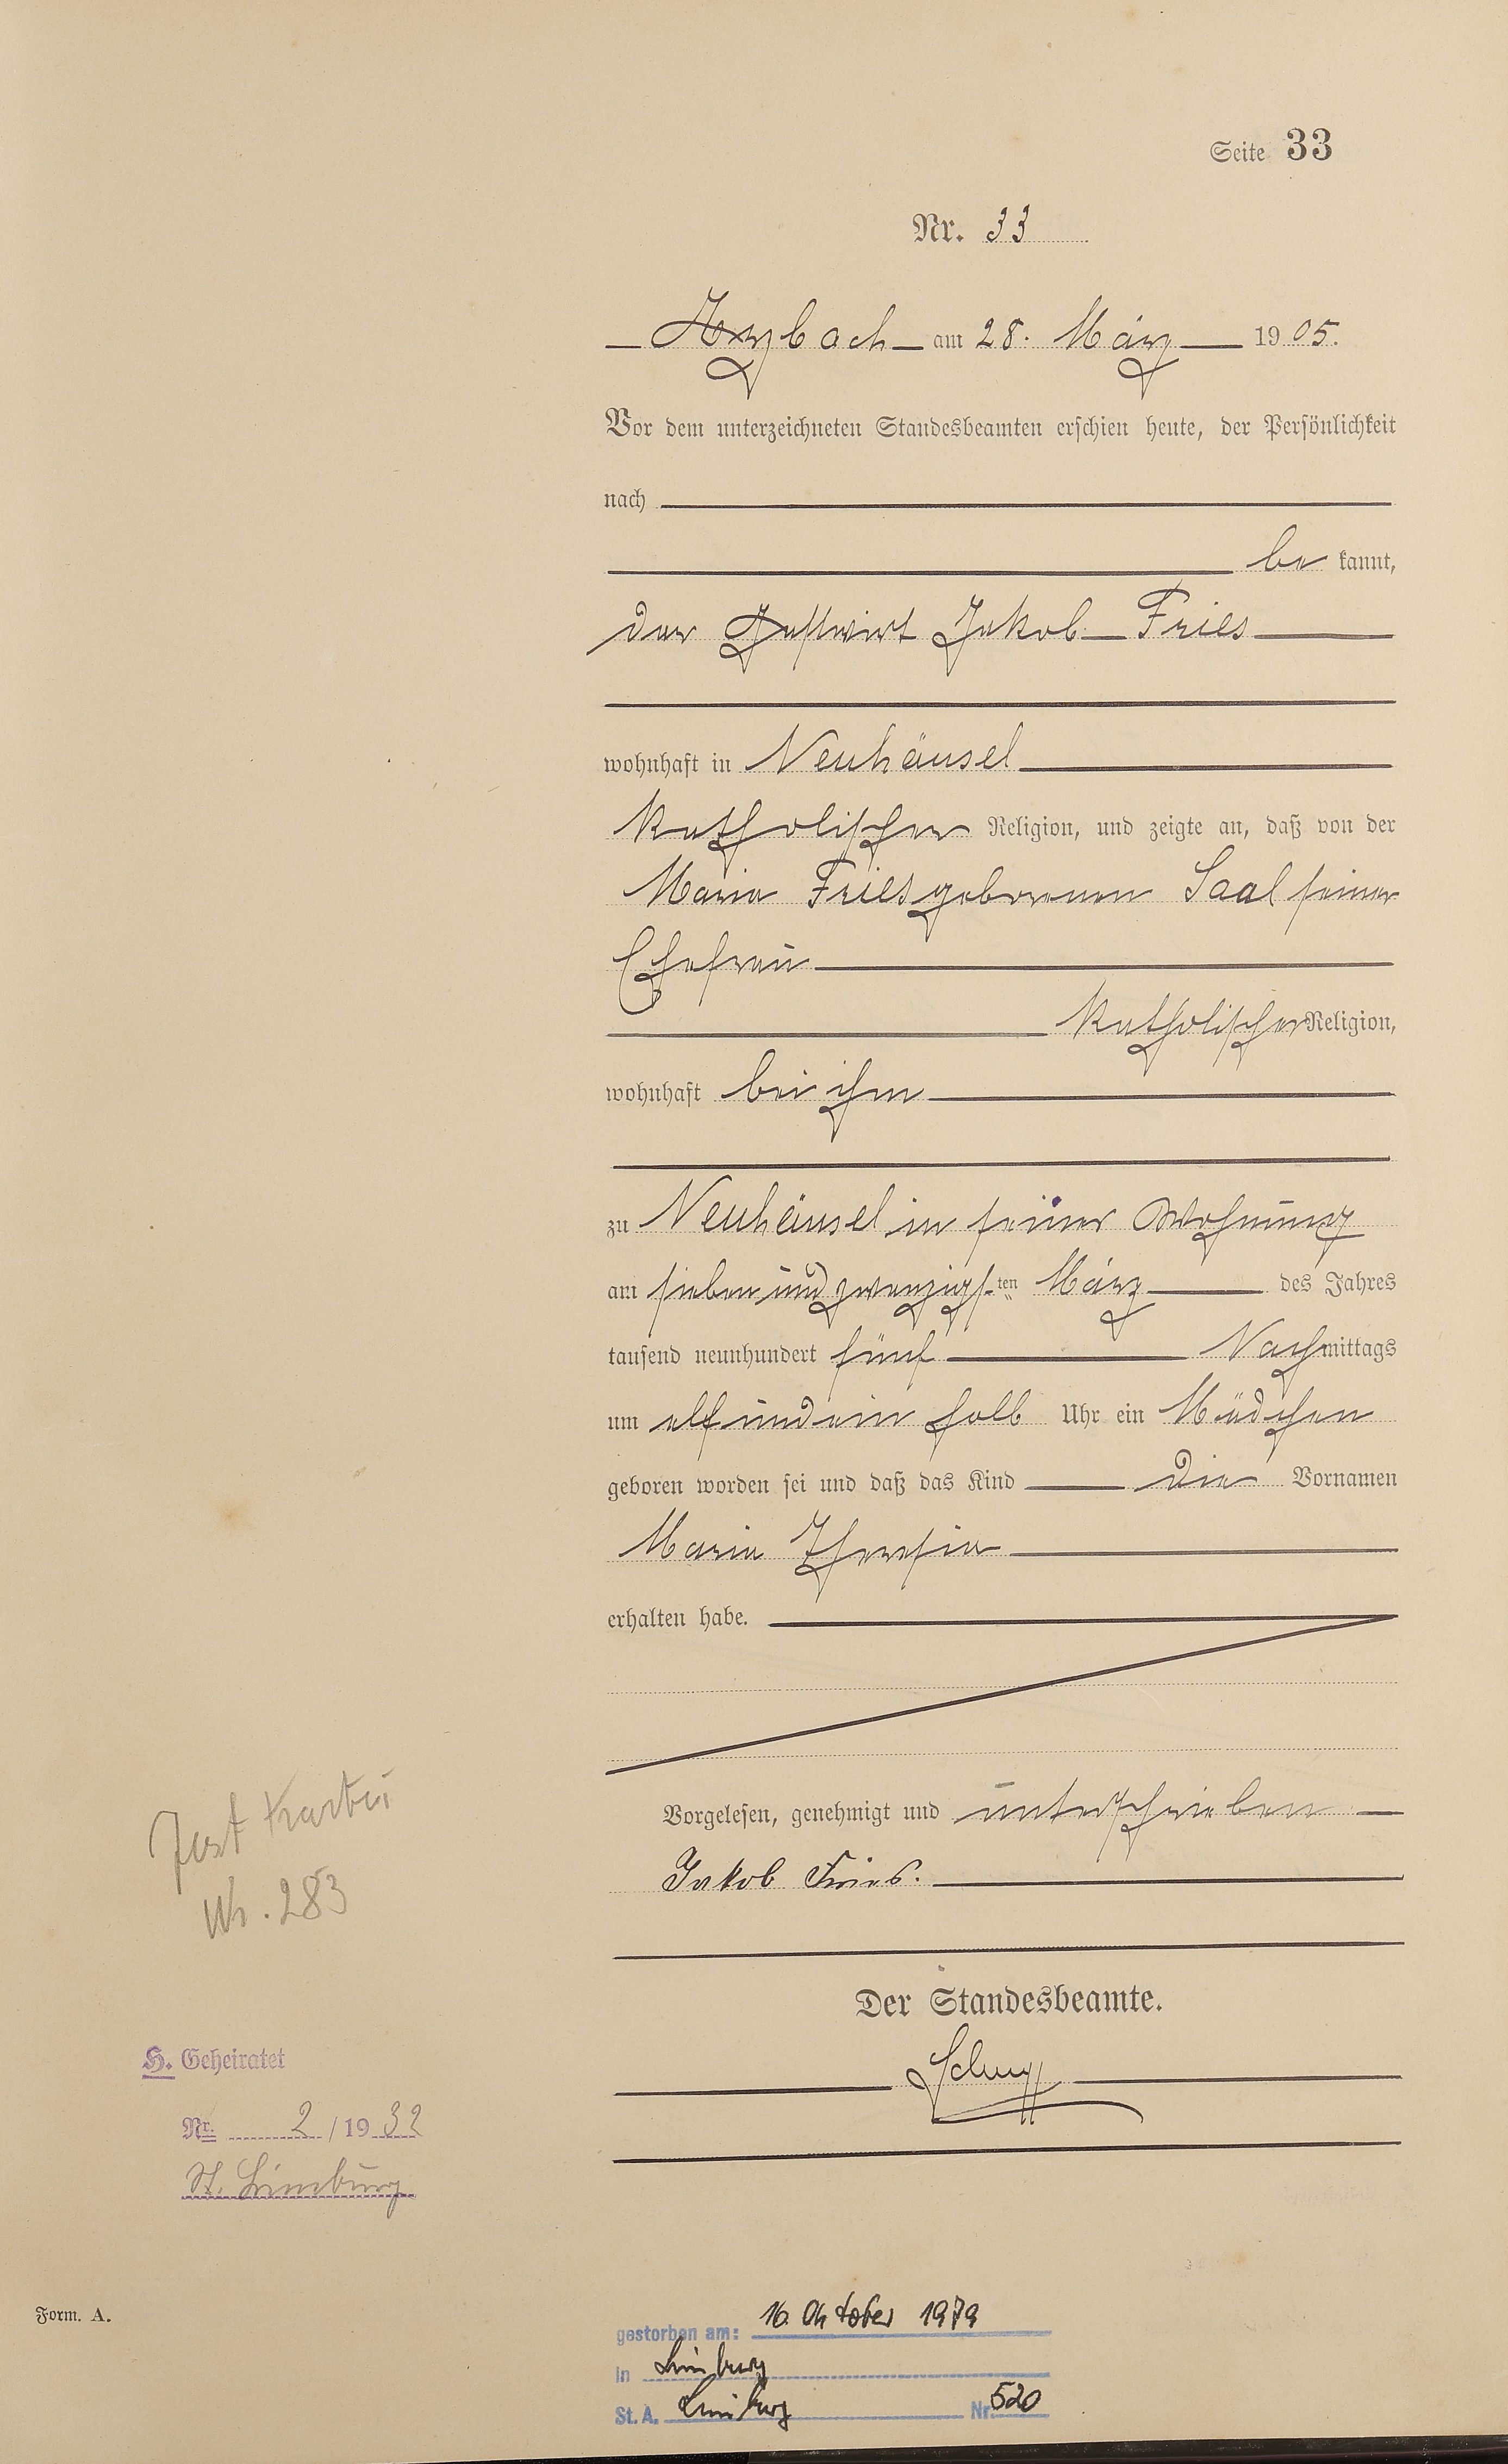 Seite 33
Nr. 33
Arzbach am 28. März 1905.
Vor dem unterzeichneten Standesbeamten erschien heute, der Persönlichkeit
nach
be kannt,
der Gastwirt Jakob Fries
wohnhaft in Neuhäusel
katholischer Religion, und zeigte an, daß von der
Maria Fries geborenen Saal seiner
Ehefrau
katholischer Religion,
wohnhaft bei ihm
zu Neuhäusel in seiner Wohnung
am sieben und zwanzigsten März des Jahres
tausend neunhundert fünf Nachmittags
um elf und ein halb Uhr ein Mädchen
geboren worden sei und daß das Kind die Vornamen
Maria Theresia
erhalten habe.
Vorgelesen, genehmigt und unterschrieben
Jakob Fries.
Der Standesbeamte.
Kartei
Nr. 283
H. Geheiratet
Nr. 2/1932
St. Limburg
Form. A.
gestorben am: 16. Oktober 1979
in Limburg
St. A. Limburg Nr. 520